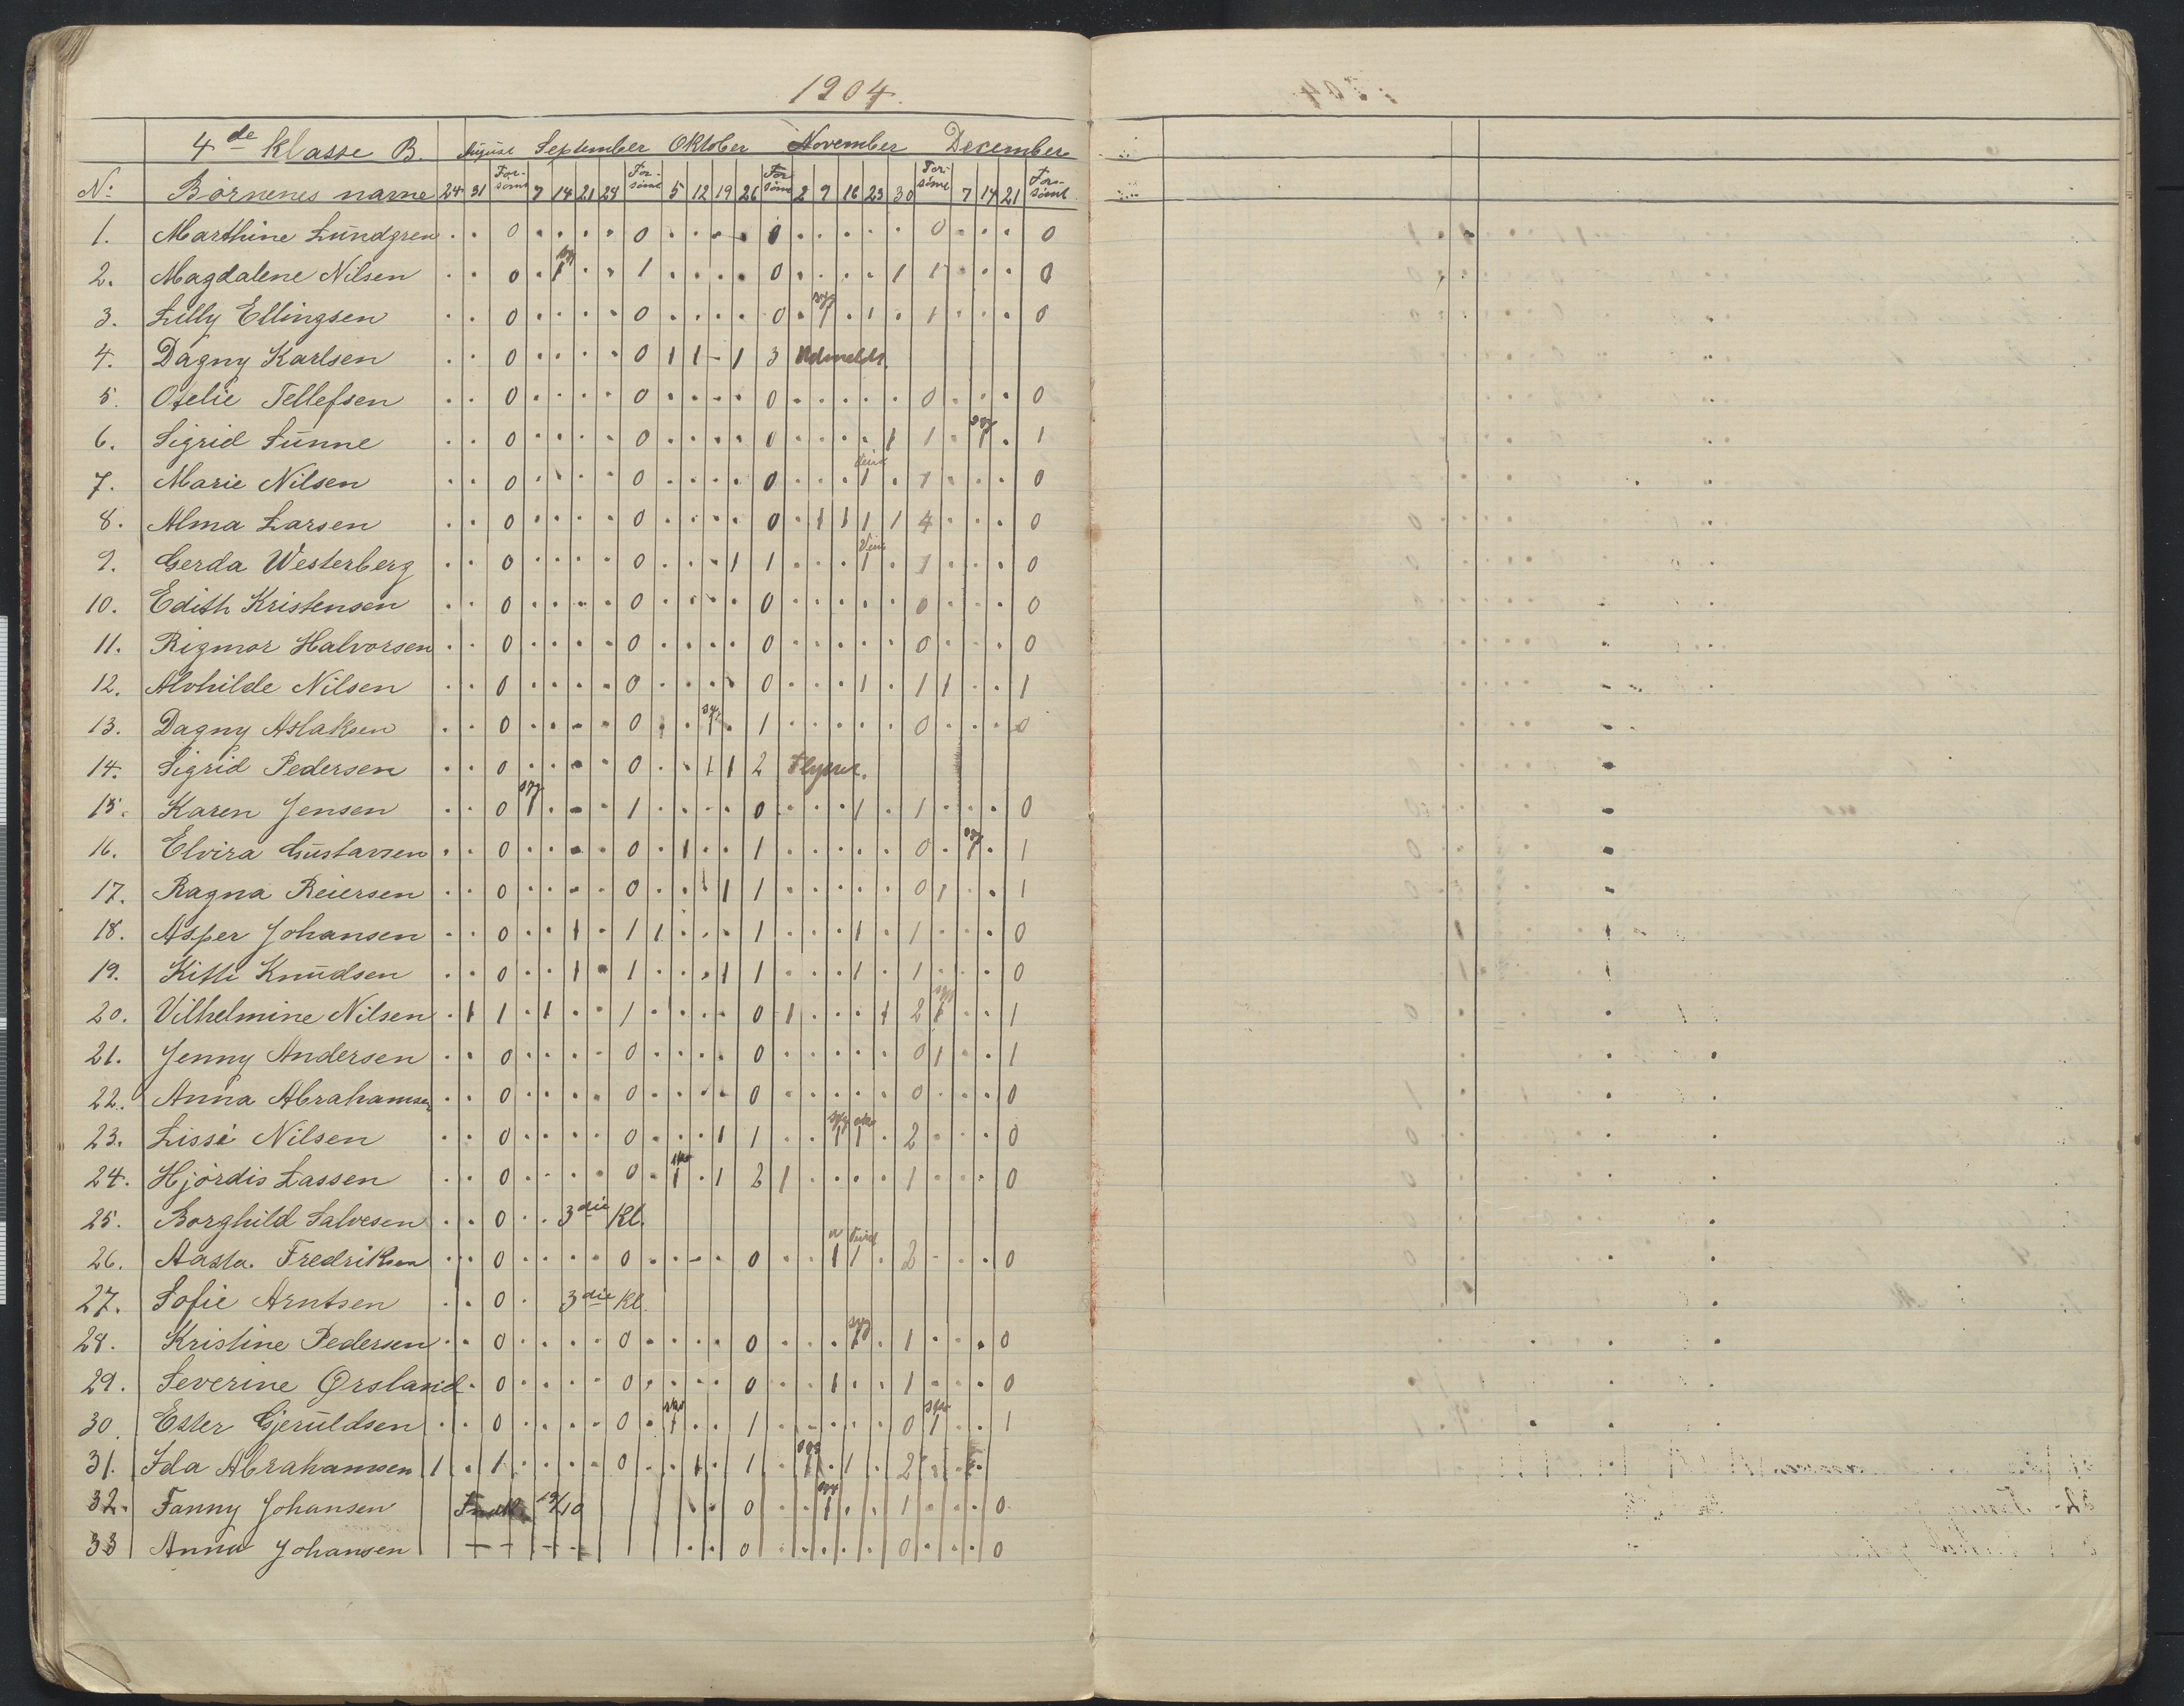 1904.
4de klasse B. August September Oktober November December
No: Börnenes navne 24 31 For-sömt 7 14 21 28 For-sömt 5 12 19 26 For-sömt 2 9 16 23 30 For-sömt 7 14 21 For-sömt
1. Marthine Lundgren . . 0 . . . . 0 . . . . 0 . . . . . 0 . . . 0
2. Magdalene Nilsen . . 0 . syg 1 . . 1 . . . . 0 . . . . 1 1 . . . 0
3. Lilly Ellingsen . . 0 . . . . 0 . . . . 0 . syg 1 . 1 . 1 . . . 0
4. Dagny Karlsen . . 0 . . . . 0 1 1 - 1 3 Udmeldt.
5. Otelie Tellefsen . . 0 . . . . 0 . . . . 0 . . . . . 0 . . . 0
6. Sigrid Sunne . . 0 . . . . 0 . . . . 0 . . . . 1 1 . syg 1 . 1
7. Marie Nilsen . . 0 . . . . 0 . . . . 0 . . . 1 . 1 . . . 0
8. Alma Larsen . . 0 . . . . 0 . . . . 0 . 1 1 1 1 4 . . . 0
9. Gerda Westerberg . . 0 . . . . 0 . . . 1 1 . . . 1 . 1 . . . 0
10. Edith Kristensen . . 0 . . . . 0 . . . . 0 . . . . . 0 . . . 0
11. Rigmor Halvorsen . . 0 . . . . 0 . . . . 0 . . . . . 0 . . . 0
12. Alvhilde Nilsen . . 0 . . . . 0 . . . . 0 . . . 1 . 1 1 . . 1
13. Dagny Aslaksen . . 0 . . . . 0 . . syg 1 . 1 . . . . . 0 . . . 0
14. Sigrid Pedersen . . 0 . . . . 0 . . 1 1 2 Flyttet.
15. Karen Jensen . . 0 syg 1 . . . 1 . . . . 0 . . . 1 . 1 . . . 0
16. Elvira Gustavsen . . 0 . . . . 0 . 1 . . 1 . . . . . 0 . syg 1 . 1
17. Ragna Reiersen . . 0 . . . . 0 . . . 1 1 . . . . . 0 1 . . 1
18. Asper Johansen . . 0 . . 1 . 1 1 . . . 1 . . . 1 . 1 . . . 0
19. Kitti Knudsen . . 0 . . 1 . 1 . . . 1 1 . . . 1 . 1 . . . 0
20. Vilhelmine Nilsen . 1 1 . 1 . . 1 . . . . 0 1 . . . 1 2 syg 1 . . 1
21. Jenny Andersen . . 0 . . . . 0 . . . . 0 . . . . . 0 1 . . 1
22. Anna Abrahamsen . . 0 . . . . 0 . . . . 0 . . . . . 0 . . . 0
23. Lissi Nilsen . . 0 . . . . 0 . . . 1 1 . . syg 1 sko 1 . 2 . . . 0
24. Hjördis Lassen . . 0 . . . . 0 . sko 1 . 1 2 1 . . . . 1 . . . 0
25. Borghild Salvesen . . 0 . . 3die Kl.
26. Aasta Fredriksen . . 0 . . . . 0 . . . . 0 . . 1 1 . 2 . . . 0
27. Sofie Arntsen . . 0 . 3die Kl.
28. Kristine Pedersen . . 0 . . . . 0 . . . . 0 . . . syg 1 . 1 . . . 0
29. Severine Ørsland . 0 . . . . 0 . . . . 0 . . 1 . . 1 . . . 0
30. Ester Gjeruldsen . . 0 . . . . 0 . sko 1 . . 1 . . . . . 0 sko 1 . . 1
31. Ida Abrahamsen 1 . 1 . . . . 0 . . 1 . 1 . syg 1 . 1 . 2 . . .
32. Fanny Johansen 19/10 . . 0 . . syg 1 . . 1 . . . 0
33 Anna Johansen - - - - . . 0 . . . . . 0 . . . 0